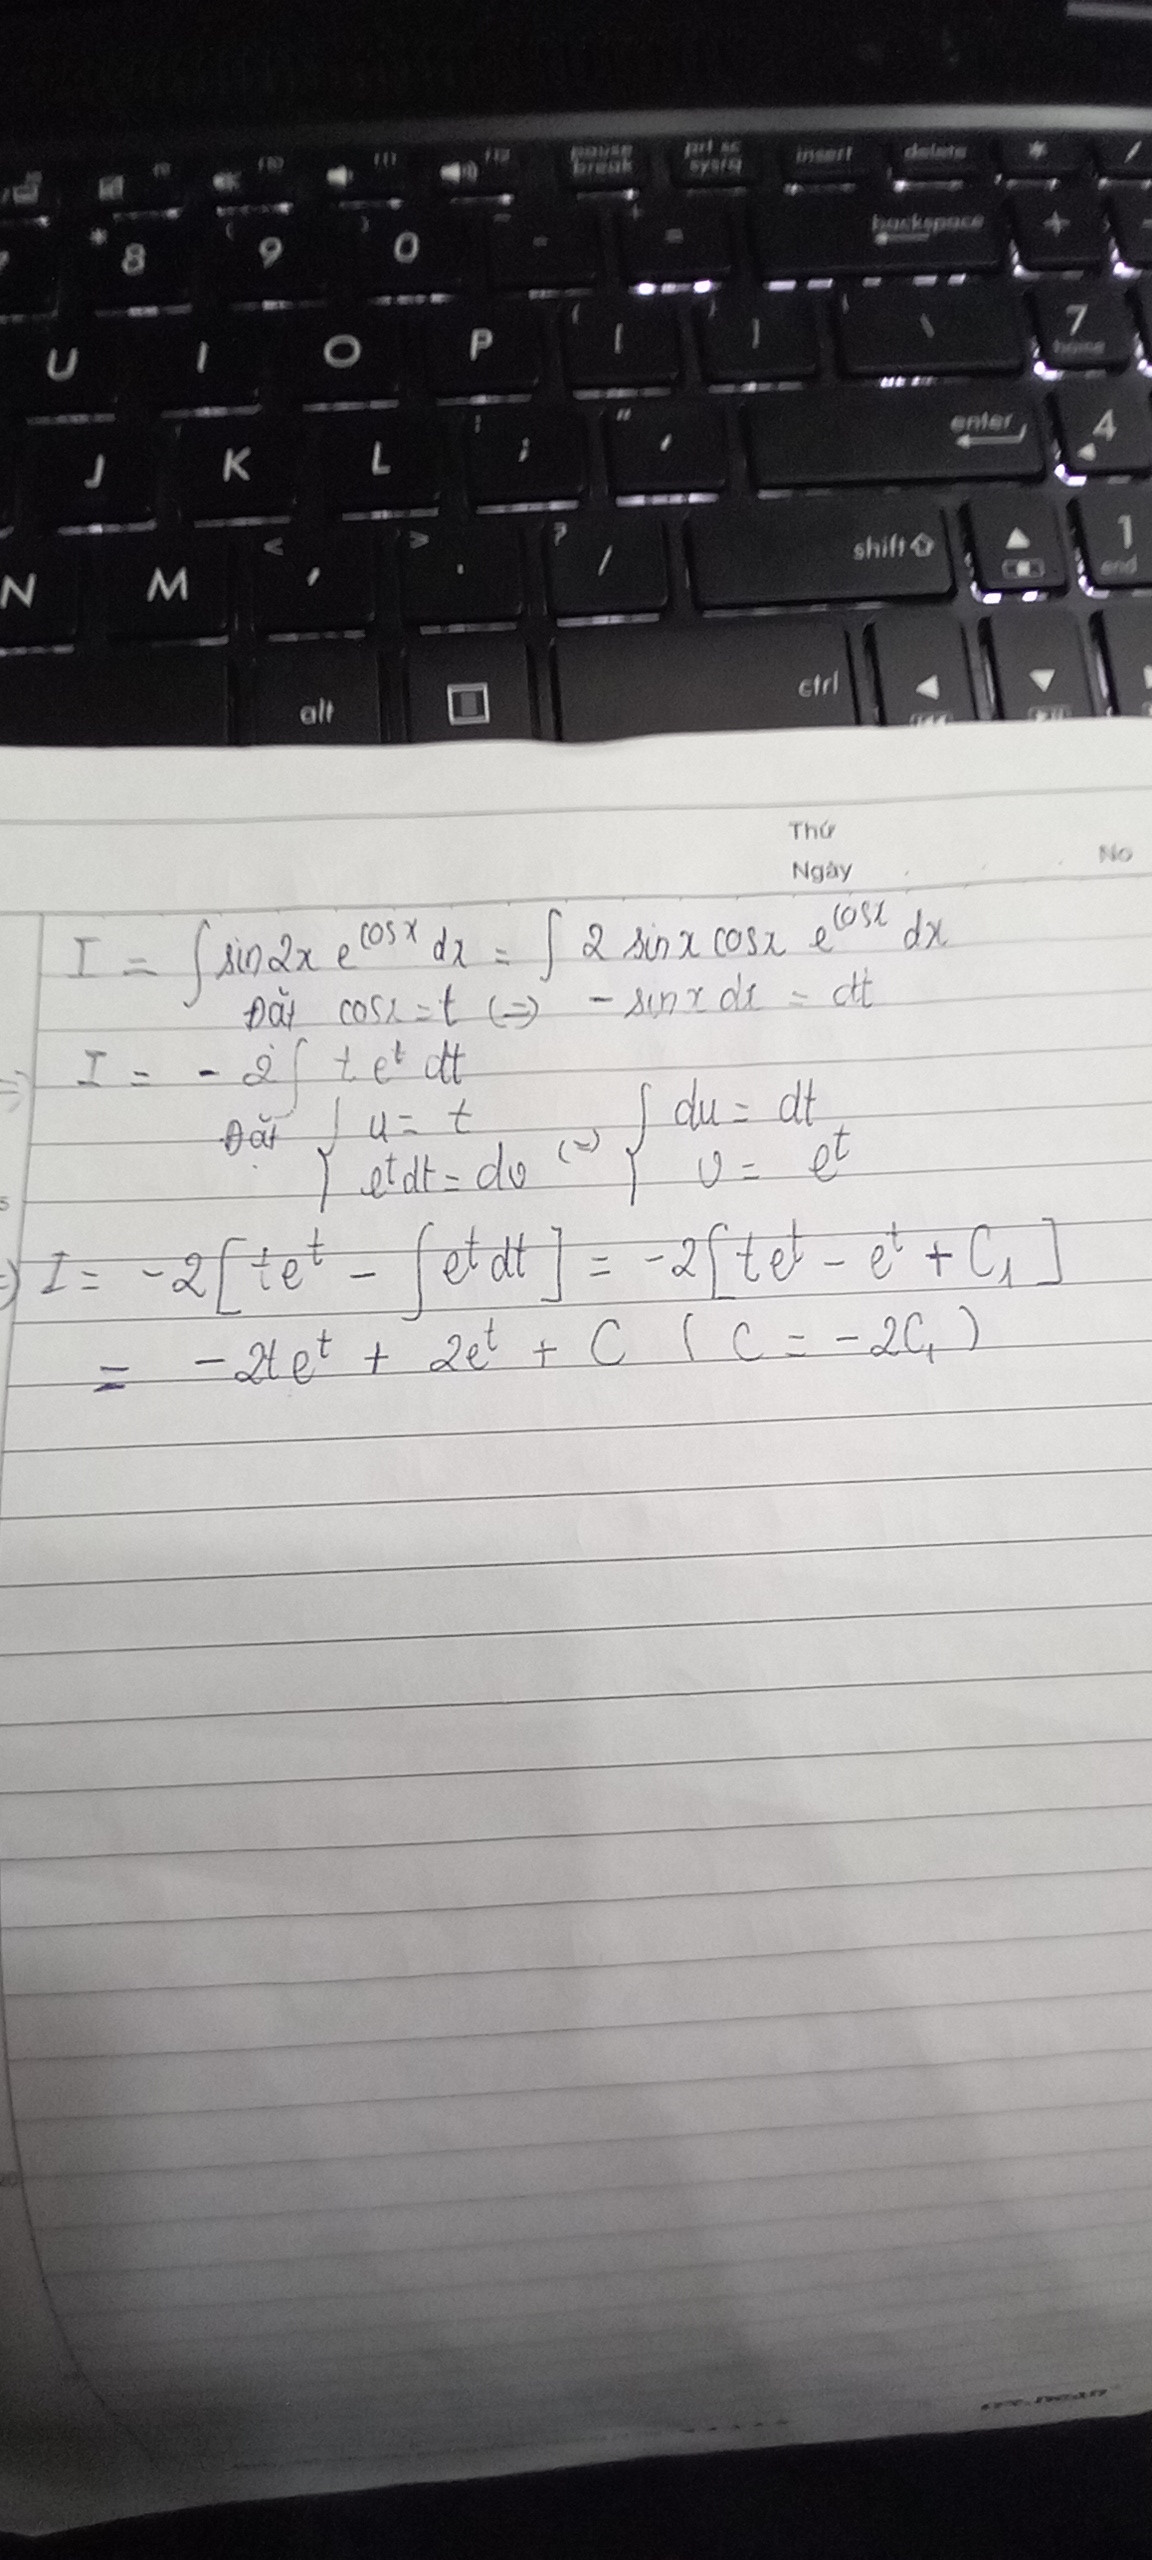 f9 f10 f11 f12 pause break prt sc sysrq insert delete * /
* 8 ( 9 ) 0 - + = backspace +
U I O P { [ } ] \ 7 home
J K L : ; " ' enter 4
N M < , > . ? / shift 1 end
alt ctrl
Thứ
Ngày No
I = ∫ sin2x e^{cosx} dx = ∫ 2 sinx cosx e^{cosx} dx
Đặt cosx = t (=) - sinx dx = dt
=) I = - 2 ∫ t e^t dt
Đặt { u = t (=) { du = dt
e^t dt = dv v = e^t
=) I = -2 [ te^t - ∫ e^t dt ] = -2 [ te^t - e^t + C₁ ]
= -2te^t + 2e^t + C ( C = -2C₁ )